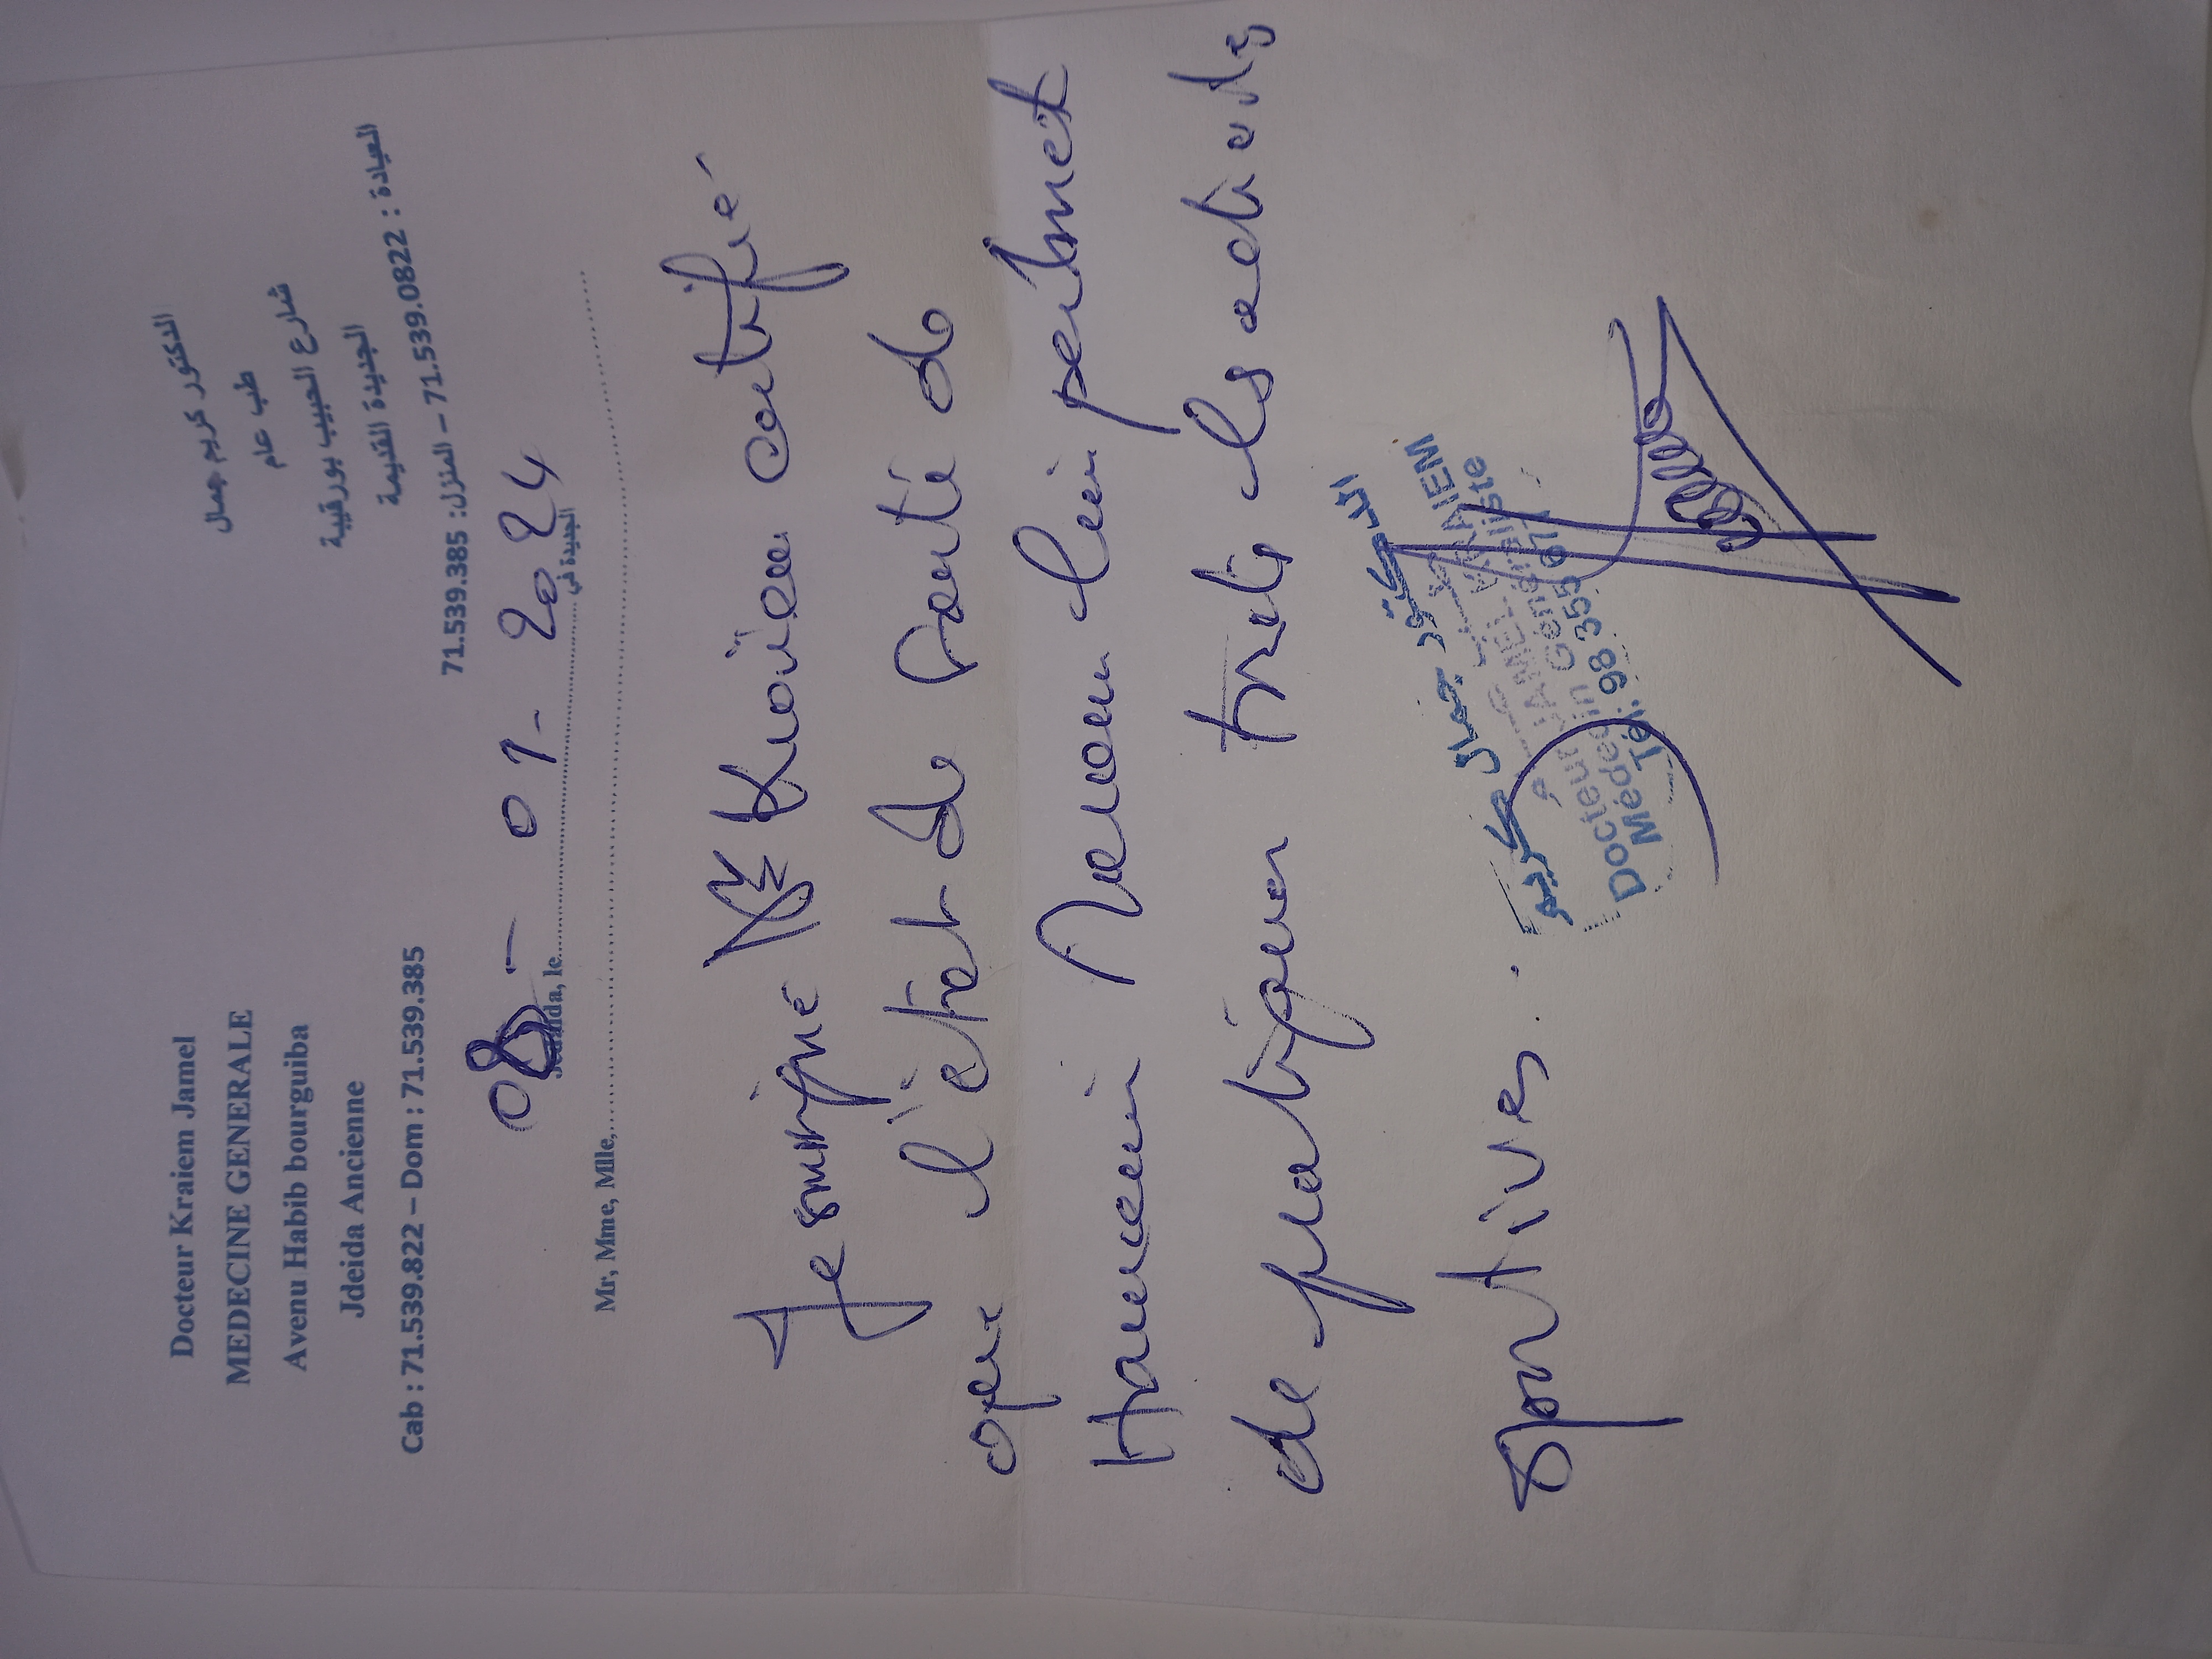 Docteur Kraiem Jamel
MEDECINE GENERALE
Avenu Habib bourguiba
Jdeida Ancienne
Cab : 71.539.822 – Dom : 71.539.385
الدكتور كريم جمال
طب عام
شارع الحبيب بورقيبة
الجديدة القديمة
العيادة : 71.539.0822 – المنزل: 71.539.385
Jedaida, le 08 - 01 - 2024 الجديدة في
Mr, Mme, Mlle,
Je soussigné Dr Kraiem certifié
que l'état de santé de
Hamemi lui permet
de pratiquer tous les activités
sportives.
الدكتور جمال كريم
Docteur JAMEL KRAIEM
Médecin Généraliste
Tél.: 98 355